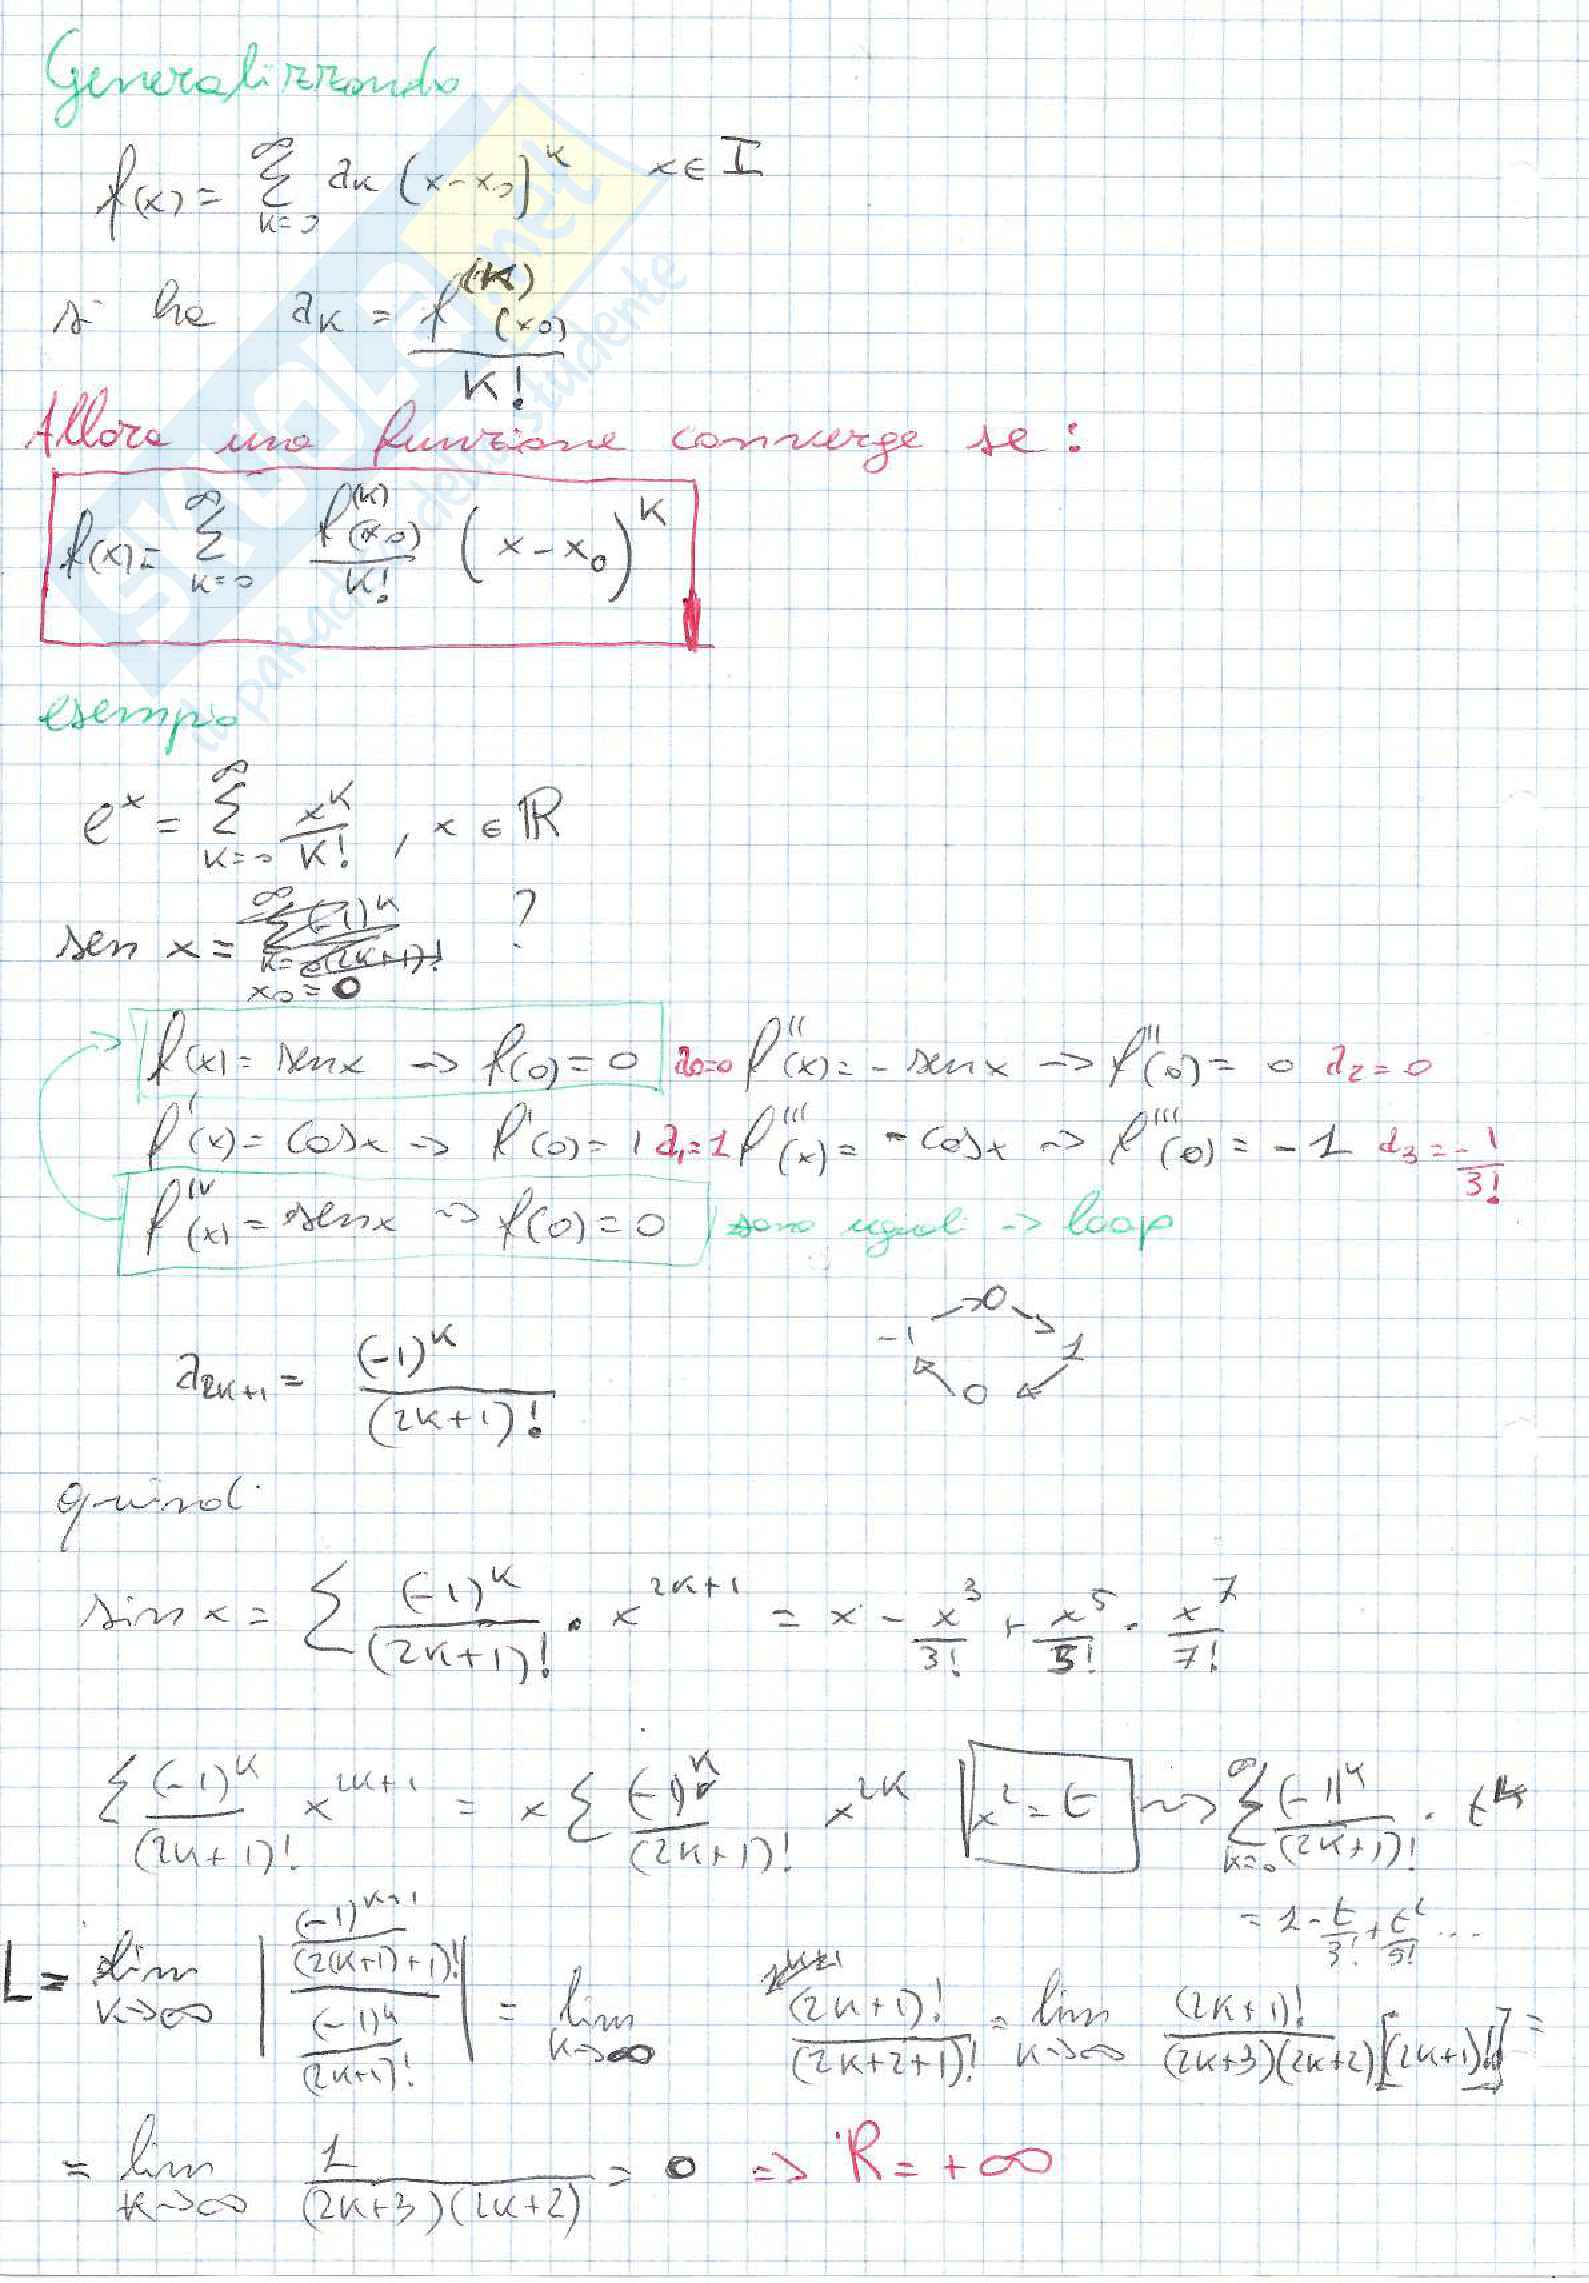 Generalizzando
f(x) = ∞ Σ k=0 a_k (x-x_0)^k x ∈ I
si ha a_k = f^(k)(x_0) / k!
Allora una funzione converge se:
f(x) = ∞ Σ k=0 f^(k)(x_0) / k! (x - x_0)^k
esempio
e^x = ∞ Σ k=0 x^k / k! , x ∈ ℝ
sen x = ∞ Σ k=0 (-1)^k / (2k+1)! ?
x_0 = 0
f(x) = senx → f(0) = 0 a_0=0 f''(x) = -senx → f''(0) = 0 a_2 = 0
f'(x) = cosx → f'(0) = 1 a_1=1 f'''(x) = -cosx → f'''(0) = -1 a_3 = -1/3!
f^IV(x) = senx → f(0) = 0 sono uguali → loop
→ 0
-1 1
0
a_2k+1 = (-1)^k / (2k+1)!
quindi
sin x = Σ (-1)^k / (2k+1)! · x^2k+1 = x - x^3/3! + x^5/5! - x^7/7!
Σ (-1)^k / (2k+1)! x^2k+1 = x Σ (-1)^k / (2k+1)! x^2k | x^2 = t → ∞ Σ k=0 (-1)^k / (2k+1)! · t^k
= 1 - t/3! + t^2/5! ...
L = lim k→∞ | (-1)^k+1 / (2(k+1)+1)! / (-1)^k / (2k+1)! | = lim k→∞ (2k+1)! / (2k+2+1)! = lim k→∞ (2k+1)! / (2k+3)(2k+2)[(2k+1)!] =
= lim k→∞ 1 / (2k+3)(2k+2) = 0 ⇒ R = +∞
SKUOLA.net
il paradiso dello studente